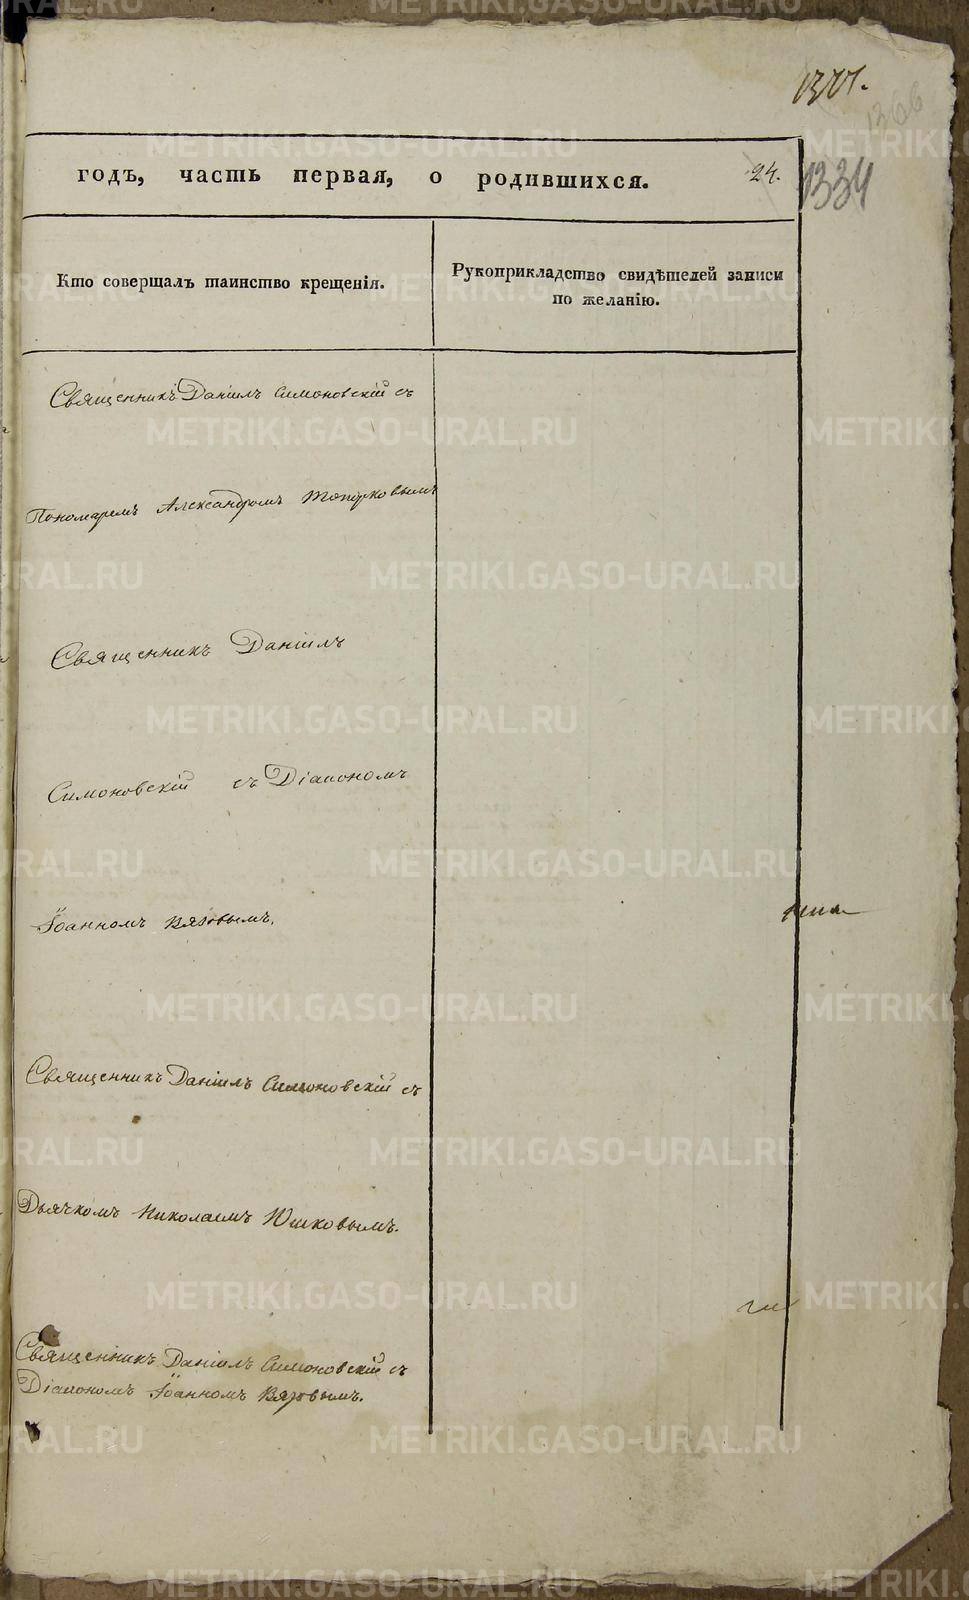 1371.
1366
годъ, часть первая, о родившихся.
24.
1334
Кто совершалъ таинство крещенія.
Рукоприкладство свидѣтелей записи
по желанію.
Священникъ Даніилъ Симоновскій съ
Пономаремъ Александромъ Топорковымъ
Священникъ Даніилъ
Симоновскій съ Діакономъ
Іоанномъ Вязовымъ.
Священникъ Даніилъ Симоновскій съ
Дьячкомъ Николаемъ Юшковымъ.
Священникъ Даніилъ Симоновскій съ
Діакономъ Іоанномъ Вязовымъ.
METRIKI.GASO-URAL.RU